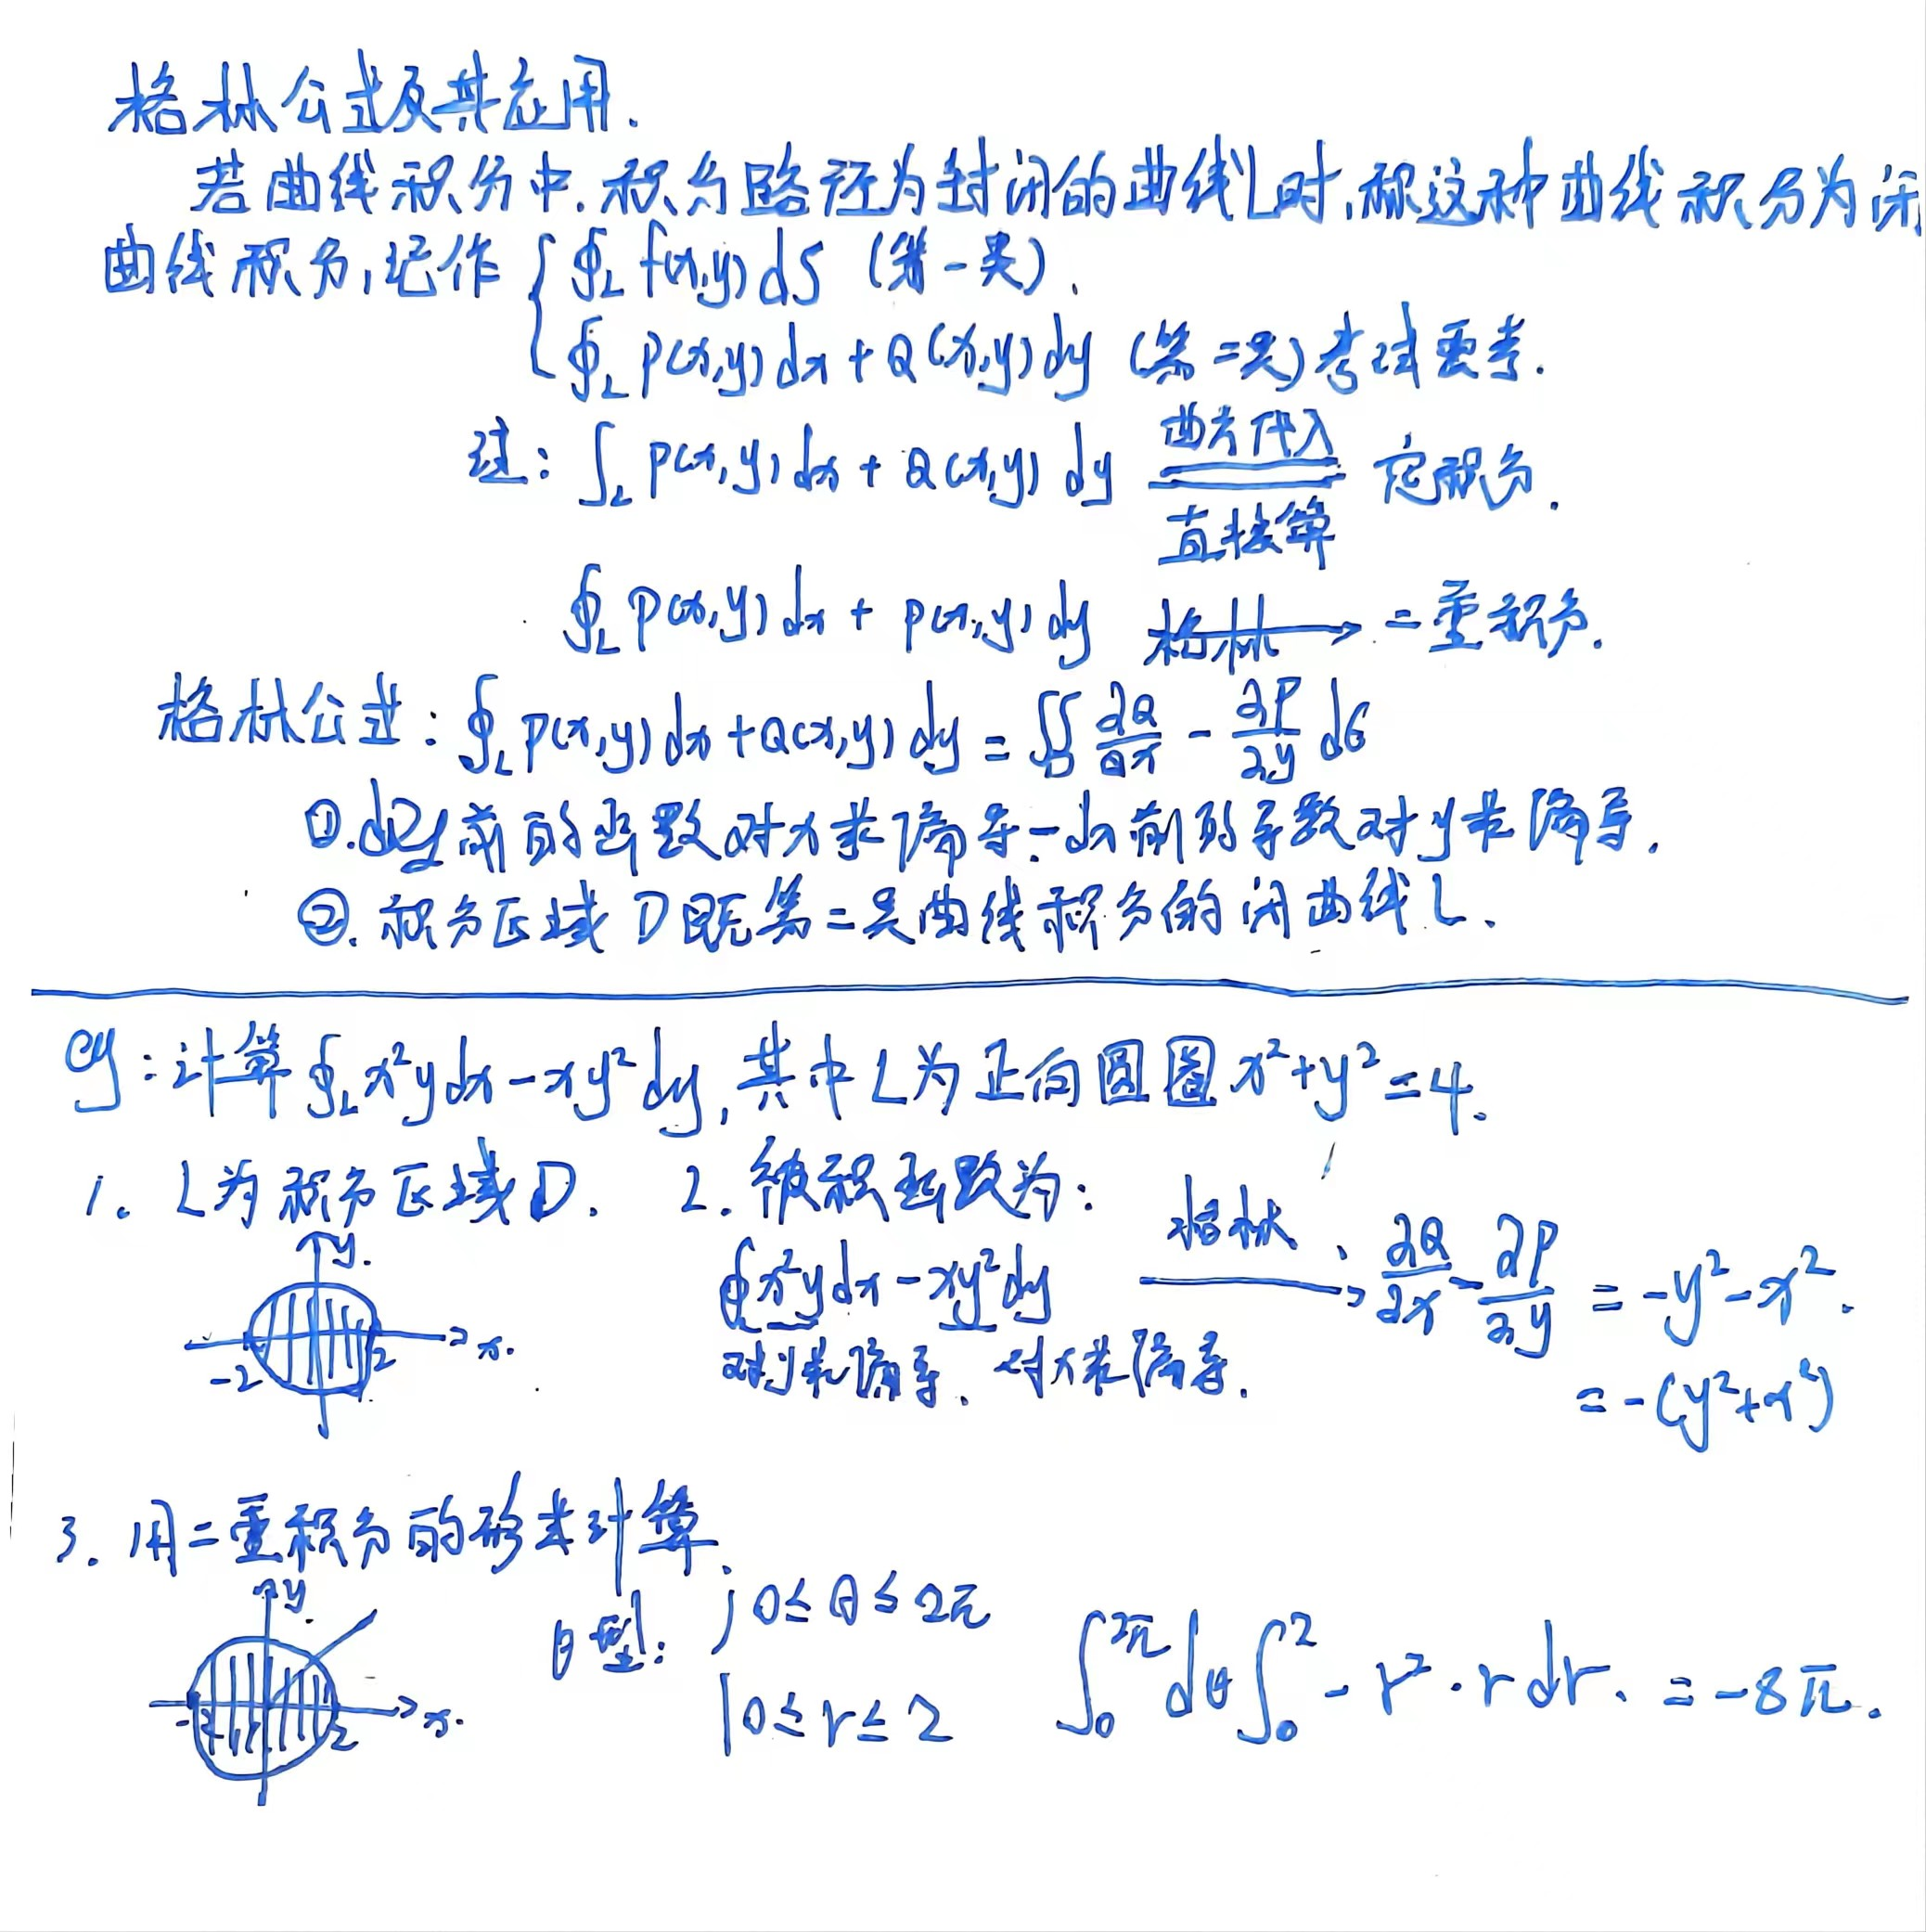 格林公式及其应用.
若曲线积分中,积分路径为封闭的曲线L时,称这种曲线积分为闭
曲线积分,记作 { ∮_L f(x,y) ds (第一类).
∮_L P(x,y) dx + Q(x,y) dy (第二类) 考试要考.
注: ∫_L P(x,y) dx + Q(x,y) dy 曲方代入 定积分.
直接算
∮_L P(x,y) dx + P(x,y) dy 格林 → 二重积分.
格林公式: ∮_L P(x,y) dx + Q(x,y) dy = ∬_D ∂Q/∂x - ∂P/∂y dσ
①. dy前的函数对x求偏导 - dx前的导数对y求偏导.
②. 积分区域D既第二类曲线积分的闭曲线L.
eg: 计算 ∮_L x²y dx - xy² dy, 其中L为正向圆圈 x²+y²=4.
1. L为积分区域D. 2. 被积函数为:
y. x. -2 2
∮ x²y dx - xy² dy 格林 → ∂Q/∂x - ∂P/∂y = -y² - x².
对y求偏导. 对x求偏导.
= -(y²+x²)
3. 用二重积分的形式计算.
y. x. -2 2
θ型: { 0≤θ≤2π
0≤r≤2
∫_0^{2π} dθ ∫_0^2 -r²·r dr. = -8π.